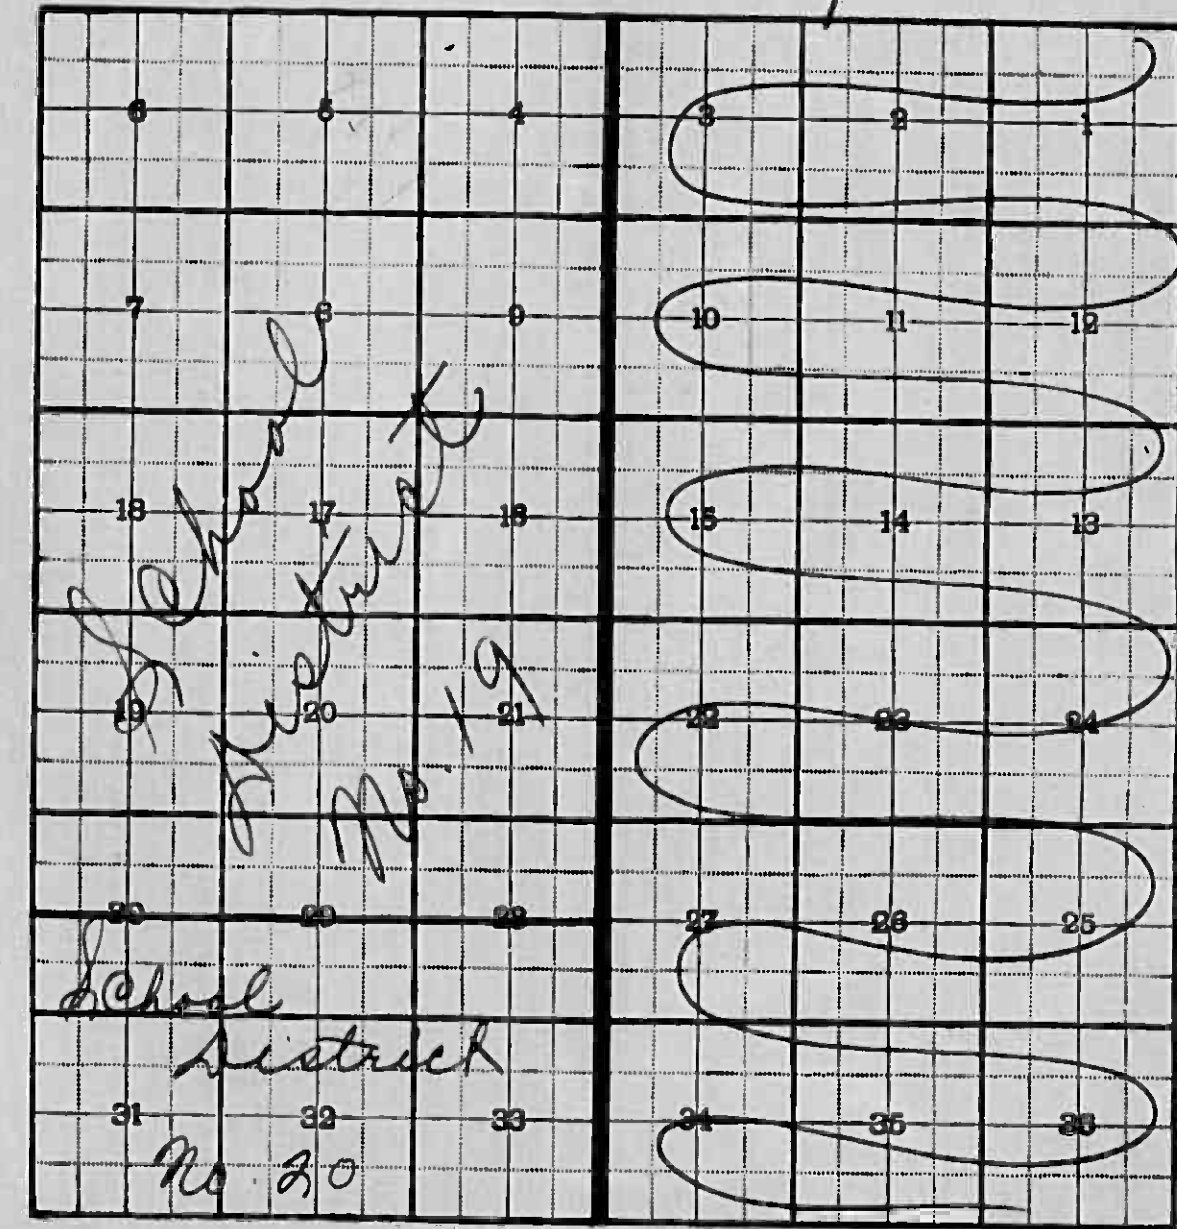 6 5 4 3 2 1
7 8 9 10 11 12
18 17 16 15 14 13
19 20 21 22 23 24
30 29 28 27 26 25
31 32 33 34 35 36
School
No. 19
School
Districk
No. 20